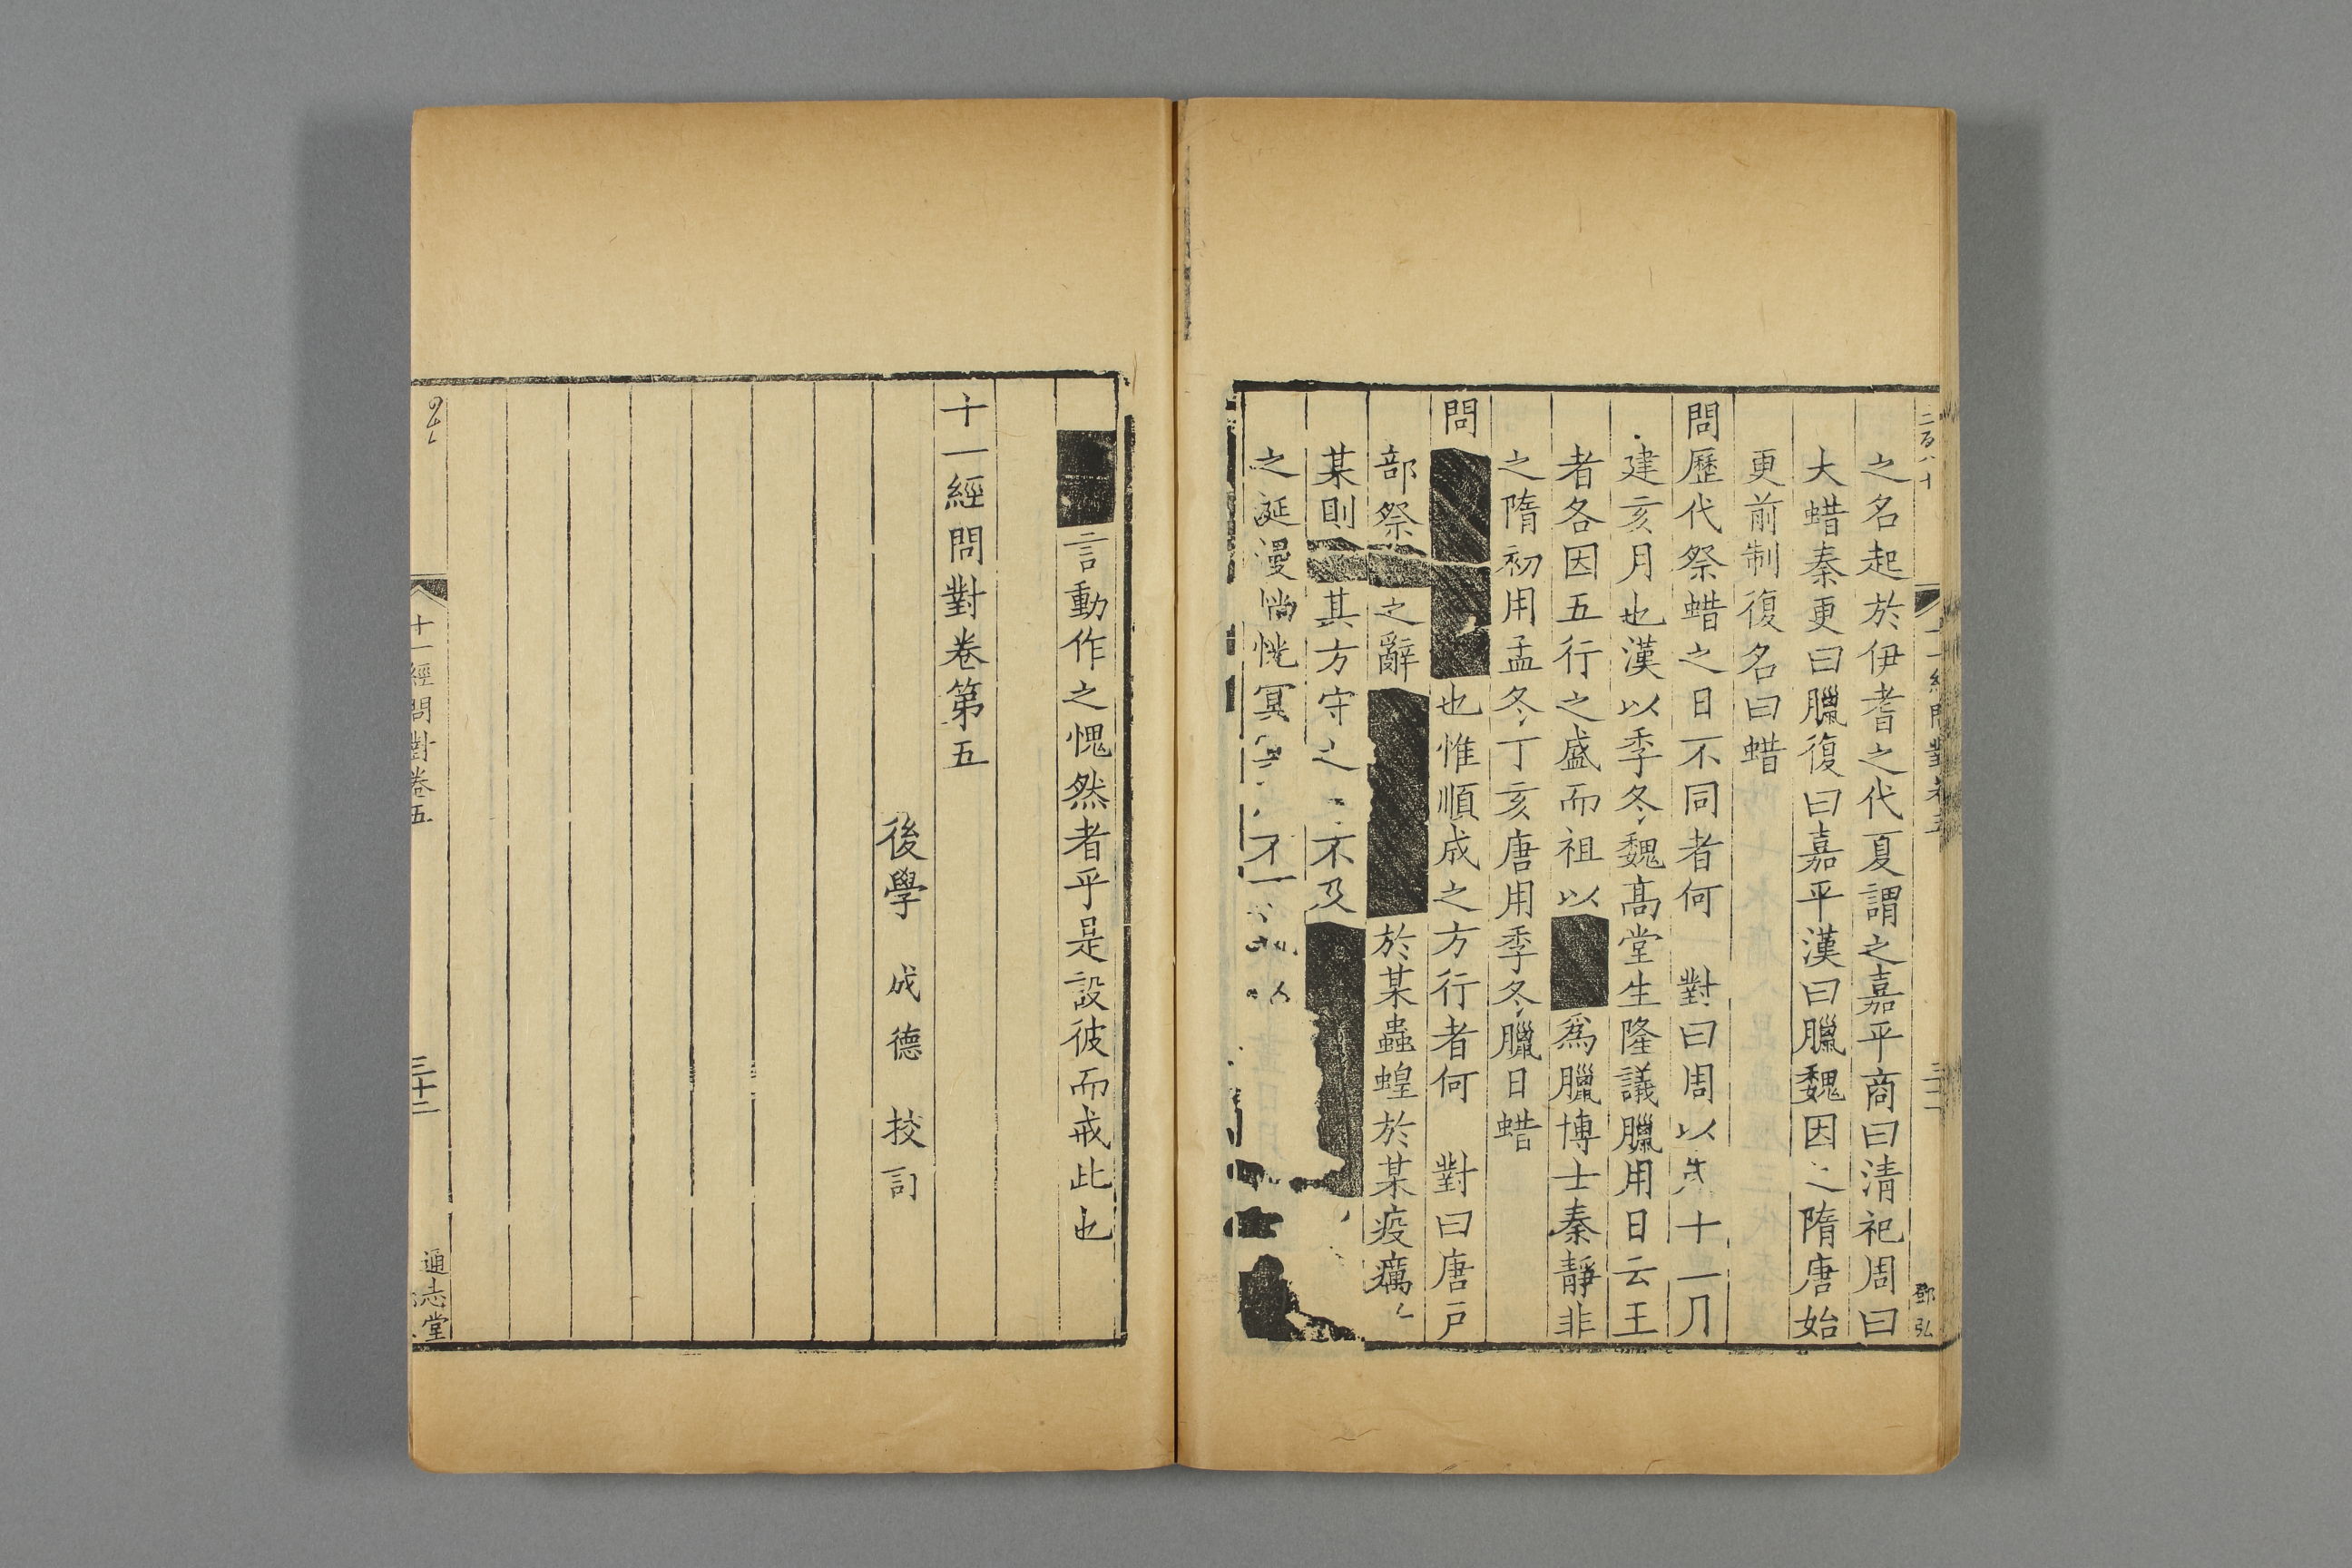 之名起於伊耆之代夏謂之嘉平商曰清祀周曰
大蜡秦更曰臘復曰嘉平漢曰臘魏因之隋唐始
更前制復名曰蜡
問歷代祭蜡之日不同者何 對曰周以 十一月
建亥月也漢以季冬魏高堂生隆議臘用日云王
者各因五行之盛而祖以 爲臘博士秦靜非
之隋初用孟冬丁亥唐用季冬臘日蜡
問 也惟順成之方行者何 對曰唐戶
部祭 之辭 於某蟲蝗於某疫癘
某則 其方守之 不及
之誕漫惝恍冥
言動作之愧然者乎是設彼而戒此也
十一經問對卷第五
後學 成德 挍訂
十一經問對卷五
三十二
通志堂
二百八十
十一經問對卷五
鄧弘